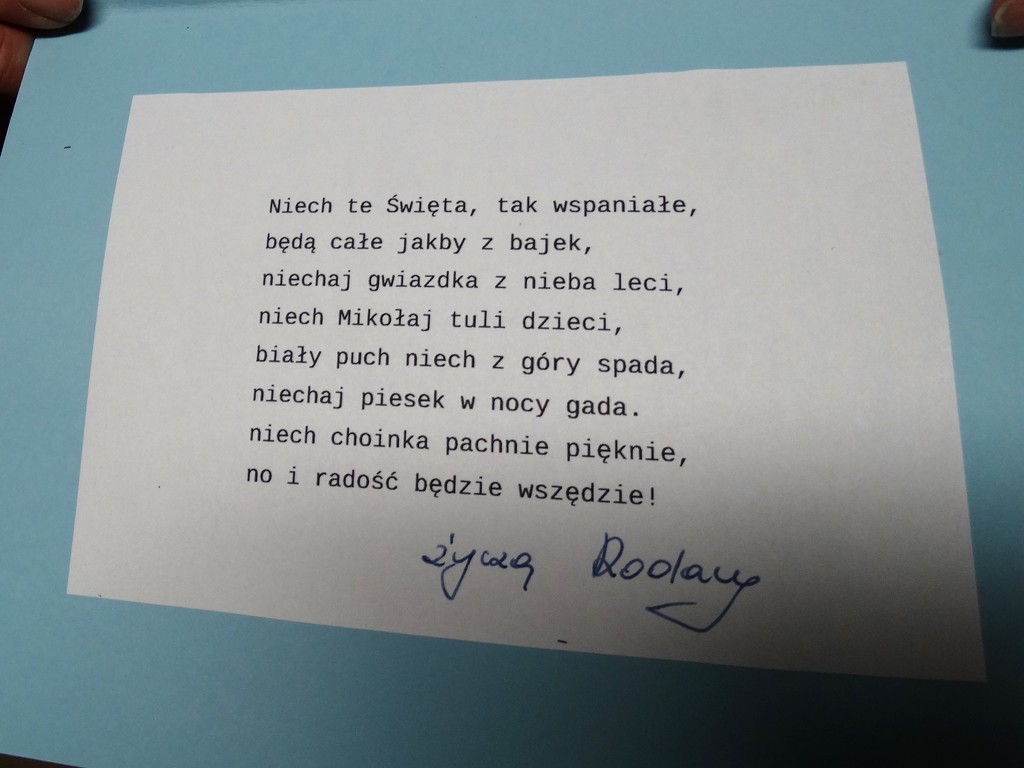 Niech te Święta, tak wspaniałe,
będą całe jakby z bajek,
niechaj gwiazdka z nieba leci,
niech Mikołaj tuli dzieci,
biały puch niech z góry spada,
niechaj piesek w nocy gada.
niech choinka pachnie pięknie,
no i radość będzie wszędzie!
życzą